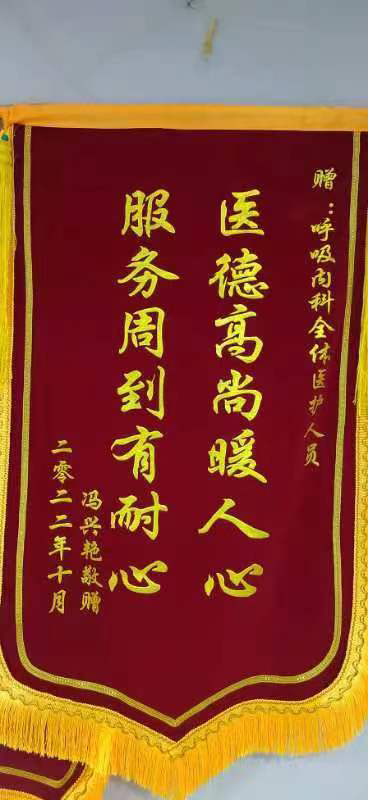 赠：呼吸内科全体医护人员
医德高尚暖人心
服务周到有耐心
冯兴艳敬赠
二零二二年十月